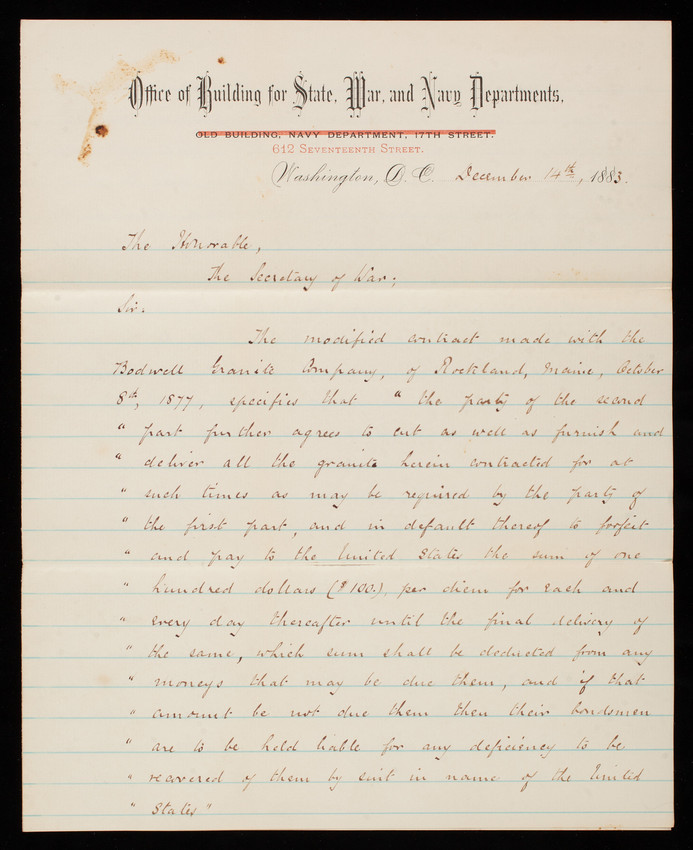 Office of Building for State, War, and Navy Departments,
OLD BUILDING, NAVY DEPARTMENT, 17TH STREET.
612 SEVENTEENTH STREET.
Washington, D. C. December 14th, 1883.
The Honorable,
The Secretary of War;
Sir:
The modified contract made with the
Bodwell Granite Company, of Rockland, Maine, October
8th, 1877, specifies that " the party of the second
" part further agrees to cut as well as furnish and
" deliver all the granite herein contracted for at
" such times as may be required by the party of
" the first part, and in default thereof to forfeit
" and pay to the United States the sum of one
" hundred dollars ($100.), per diem for each and
" every day thereafter until the final delivery of
" the same, which sum shall be deducted from any
" moneys that may be due them, and if that
" amount be not due them then their bondsmen
" are to be held liable for any deficiency to be
" recovered of them by suit in name of the United
" States"